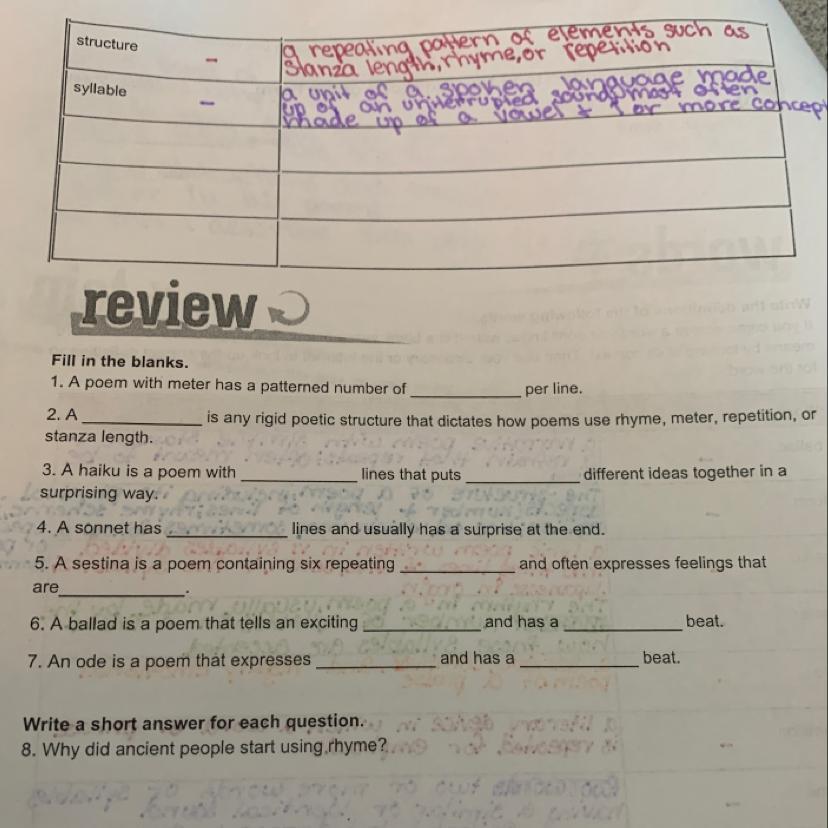 structure - a repeating pattern of elements such as
stanza length, rhyme, or repetition
syllable - a unit of a spoken language made
up of an uninterrupted sound most often
made up of a vowel + 1 or more concep
review
Fill in the blanks.
1. A poem with meter has a patterned number of ____________ per line.
2. A ____________ is any rigid poetic structure that dictates how poems use rhyme, meter, repetition, or
stanza length.
3. A haiku is a poem with ____________ lines that puts ____________ different ideas together in a
surprising way.
4. A sonnet has ____________ lines and usually has a surprise at the end.
5. A sestina is a poem containing six repeating ____________ and often expresses feelings that
are____________.
6. A ballad is a poem that tells an exciting ____________ and has a ____________ beat.
7. An ode is a poem that expresses ____________ and has a ____________ beat.
Write a short answer for each question.
8. Why did ancient people start using rhyme?